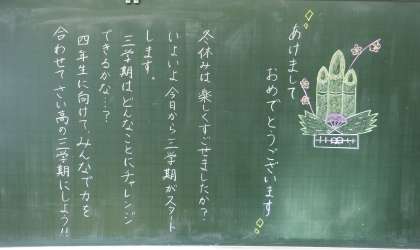 あけまして
おめでとうございます
冬休みは楽しくすごせましたか?
いよいよ今日から三学期がスタート
します。
三学期はどんなことにチャレンジ
できるかな…?
四年生に向けて、みんなで力を
合わせてさい高の三学期にしよう!!